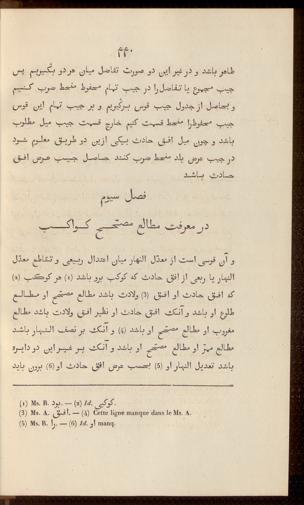 ۴۴۰
ظاهر باشد و در غیر این دو صورت تفاضل میان هر دو بگیریم پس
جیب مجموع یا تفاضل را در جیب تمام محفوظ منحط ضرب کنیم
و بحاصل از جدول جیب قوس برگیریم و بر جیب تمام این قوس
جیب محفوظرا منحط قسمت کنیم خارج قسمت جیب میل مطلوب
باشد و چون میل افق حادث بیکی ازین دو طریق معلوم شود
در جیب عرض بلد منحط ضرب کنند حاصل جیب عرض افق
حادث باشد
فصل سیوم
در معرفت مطالع مصحح کواکب
و آن قوسی است از معدل النهار میان اعتدال ربیعی و تقاطع معدل
النهار با ربعی از افق حادث که کوکب برو باشد (۱) هر کوکب (۲)
که افق حادث او افق (3) ولادت باشد مطالع مصحح او مطالع
طلوع او باشد و آنک افق حادث او نظیر افق ولادت باشد مطالع
مغروب او مطالع مصحح او باشد (4) و آنک بر نصف النهار باشد
مطالع ممر او مطالع مصحح او باشد و آنک بر غیر این دو دایره
باشد تعدیل النهار او (5) بحسب عرض افق حادث او (6) برون باید
(1) Ms. B. بود. — (2) Id. کوکبی.
(3) Ms. A. افق. — (4) Cette ligne manque dans le Ms. A.
(5) Ms. B. را. — (6) Id. او manq.